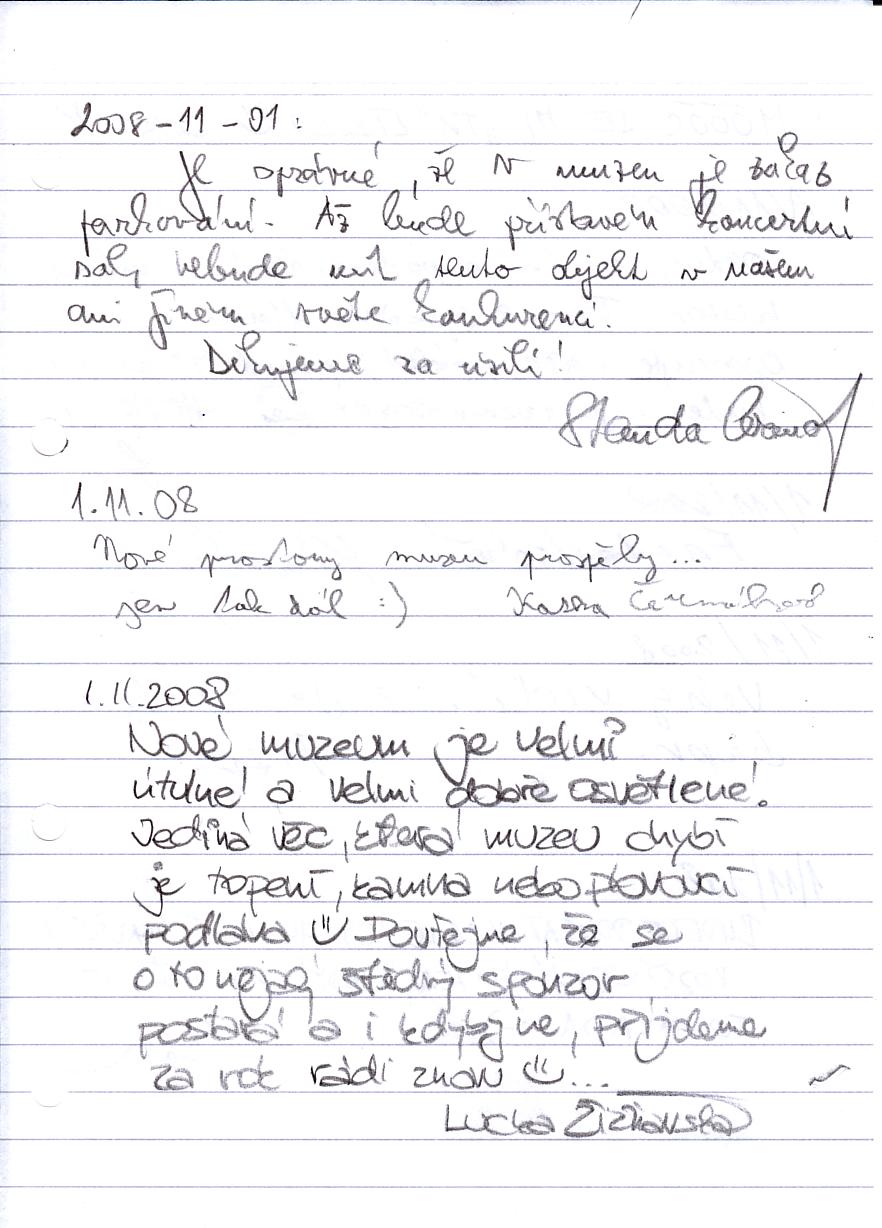 2008-11-01:
Je správné, že v muzeu je zákaz
parkování. Až bude přístavem koncertní
sál, nebude mít tento objekt v našem
ani jiném světe konkurenci.
Děkujeme za úsilí!
Standa
1.11.08
Nové prostory muzeu prospěly...
jen tak dál :)
1.11.2008
Nové muzeum je velmi
útulné a velmi dobře osvětlené!
Jediná věc, která muzeu chybí
je topení, kamna nebo plovoucí
podlaha ☺ Doufejme, že se
o to nějaký štědrý sponzor
postará a i kdyby ne, přijdeme
za rok rádi znovu ☺...
Lucka Žižkovská